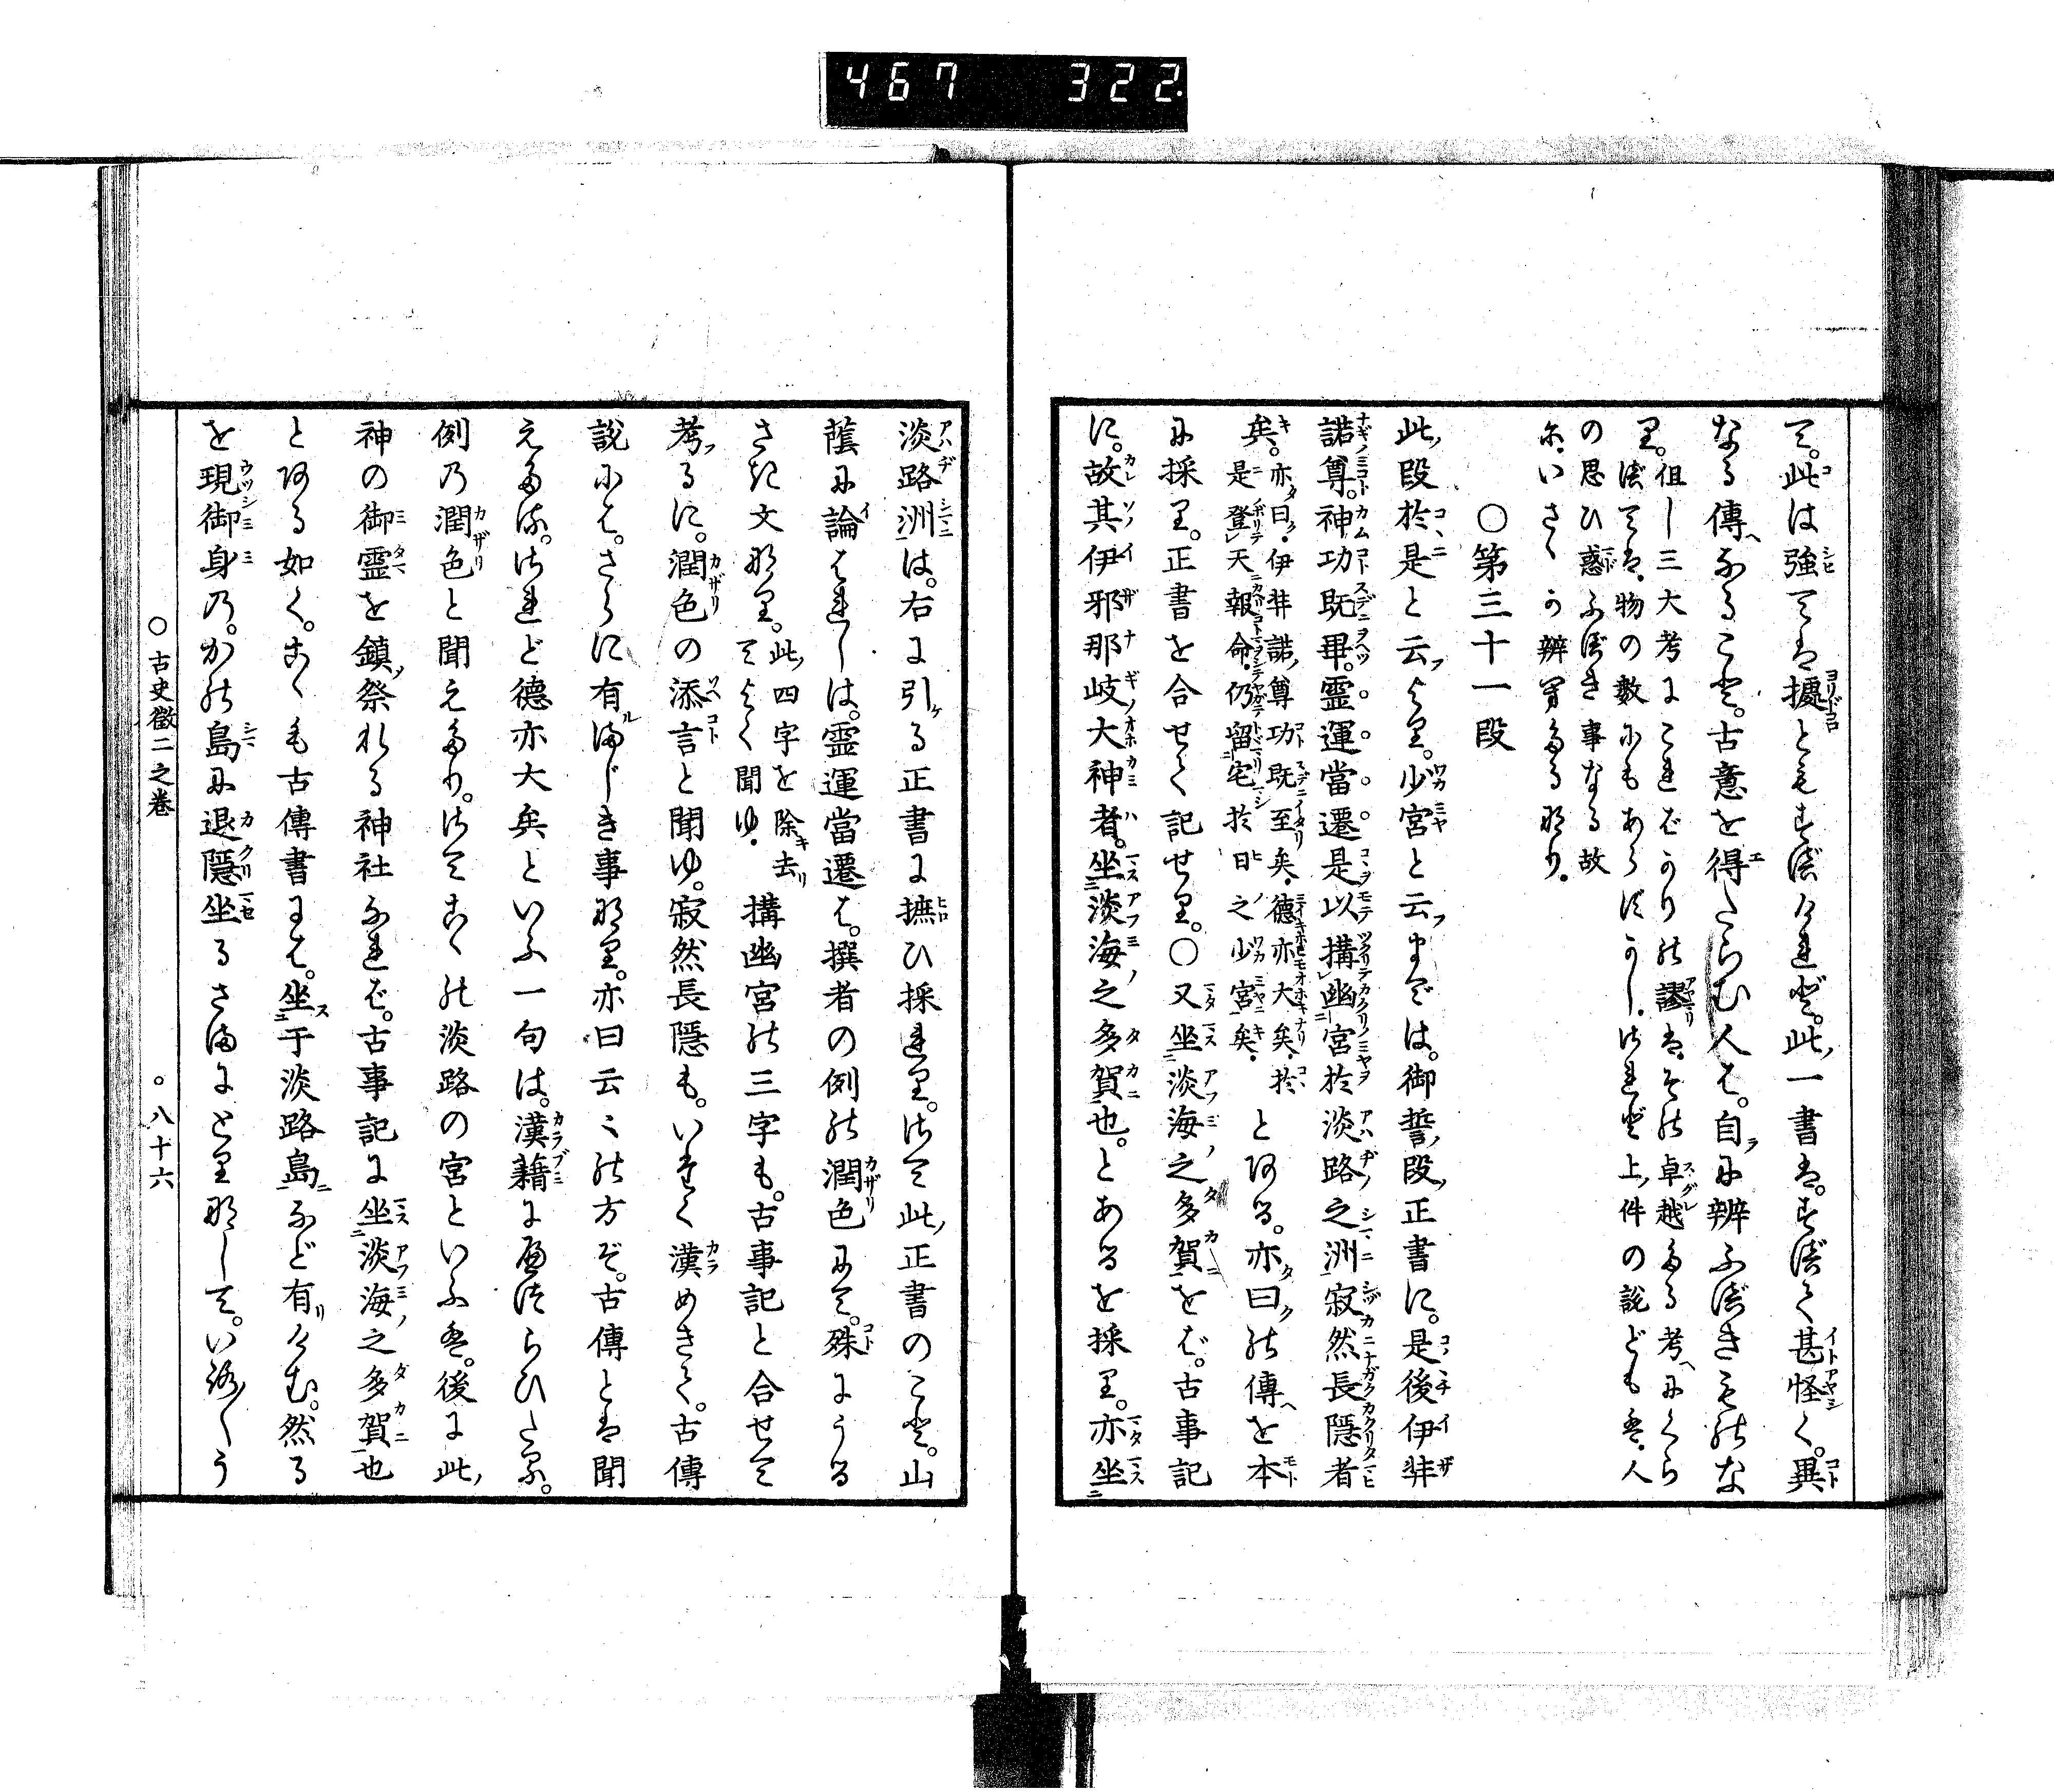 467 322
て。此は強ては據ともすべけれど。此一書は。すべて甚怪く。異
なる傳なること。古意を得たらむ人は。自に辨ふべきものな
り。但し三大考にこればかりの謬は。その卓越たる考にくら
べては。物の數にもあらずかし。されど上件の説どもは。人
の思ひ惑ふべき事なる故
に。いさゝか辨まへたるなり。
〇第三十一段
此段於是と云より。少宮と云までは。御誓段正書に。是後伊弉
諾尊。神功既畢。靈運當遷。是以搆幽宮於淡路之洲寂然長隱者
矣。亦曰。伊弉諾尊功既至矣。德亦大矣。於
是登天報命。仍留宅於日之少宮矣。とある。亦曰の傳を本
に採り。正書を合せて記せり。〇又坐淡海之多賀をば。古事記
に。故其伊邪那岐大神者。坐淡海之多賀也。とあるを採り。亦坐
淡路洲は。右に引る正書に摭ひ採れり。さて此正書のこと。山
蔭に論はれしは。靈運當遷は。撰者の例の潤色にて。殊にうる
さき文なり。此四字を除去
てよく聞ゆ。搆幽宮の三字も。古事記と合せて
考るに。潤色の添言と聞ゆ。寂然長隱も。いたく漢めきて。古傳
説には。さらに有まじき事なり。亦曰云々の方ぞ。古傳とは聞
えたる。されど德亦大矣といふ一句は。漢籍にへつらひたる。
例の潤色と聞えたり。さてこゝの淡路の宮といふは。後に此
神の御靈を鎭祭れる神社なれば。古事記に坐淡海之多賀也
とある如く。こゝも古傳書には。坐于淡路島など有けむ。然る
を現御身の。かの島に退隱坐るさまにとりなして。いみしう
〇古史徴二之卷 。八十六